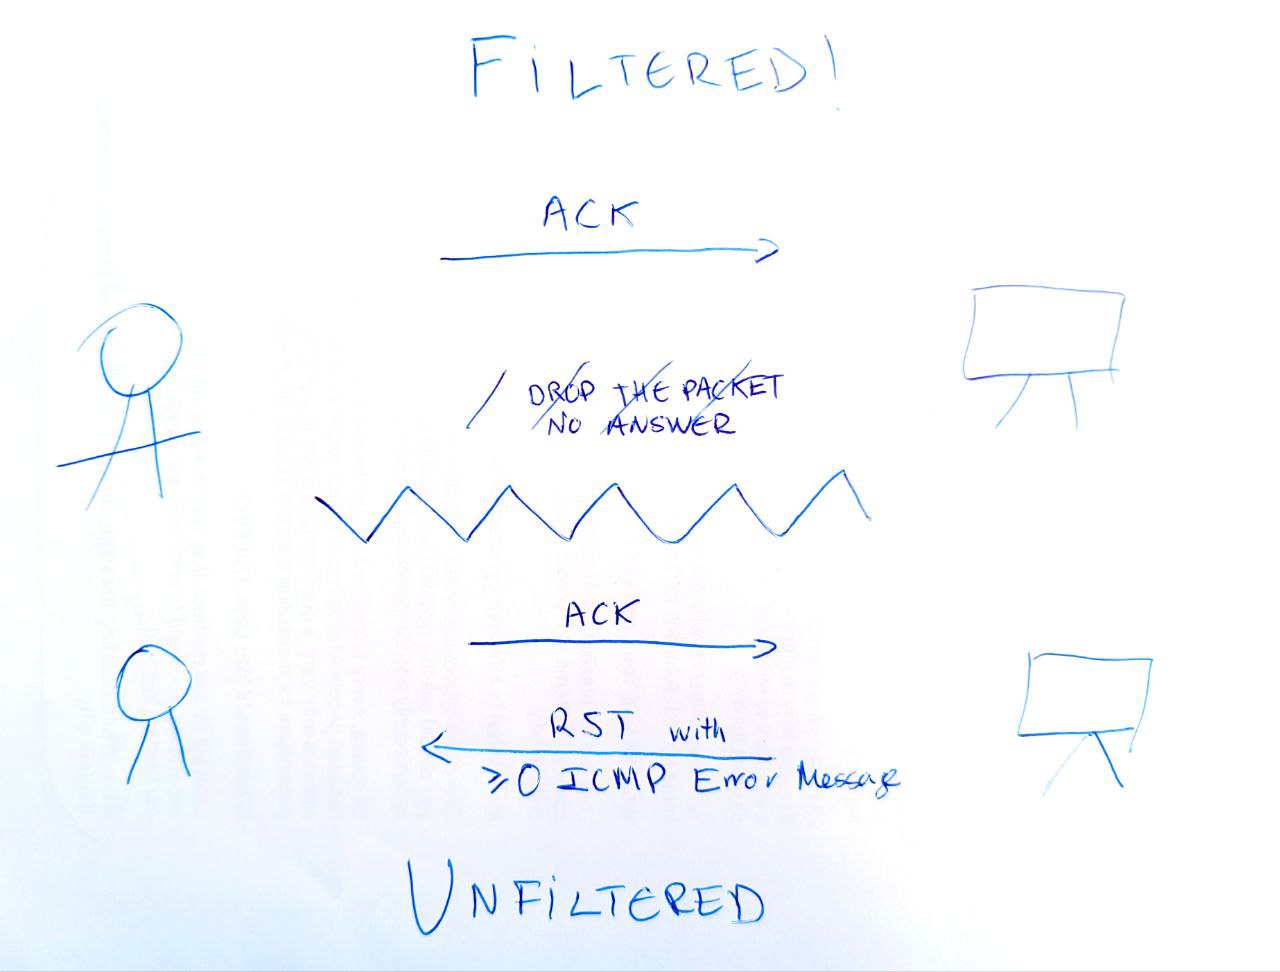 FiLTERED!
ACK
/ DROP THE PACKET
NO ANSWER
ACK
RST with
⩾0 ICMP Error Message
UNFiLTERED